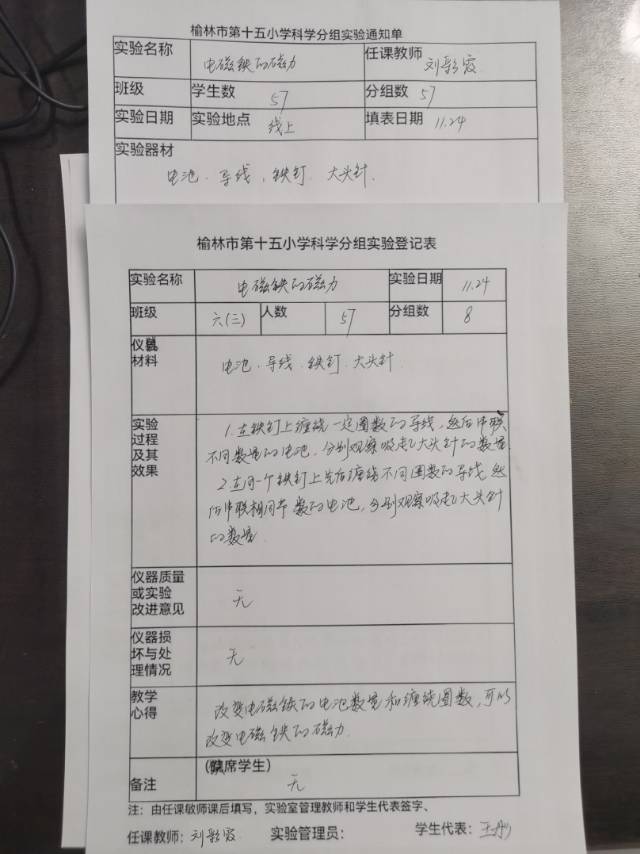 榆林市第十五小学科学分组实验通知单
实验名称 电磁铁的磁力 任课教师 刘彩霞
班级 学生数 57 分组数 57
实验日期 实验地点 线上 填表日期 11.24
实验器材
电池、导线、铁钉、大头针.
榆林市第十五小学科学分组实验登记表
实验名称 电磁铁的磁力 实验日期 11.24
班级 六(三) 人数 57 分组数 8
仪器
材料 电池、导线、铁钉、大头针
实验
过程
及其
效果
1.在铁钉上缠绕一定圈数的导线,然后串联
不同数量的电池,分别观察吸起大头针的数量.
2在同一个铁钉上先后缠绕不同圈数的导线,然
后串联相同节数的电池,分别观察吸起大头针
的数量
仪器质量
或实验
改进意见 无
仪器损
坏与处
理情况 无
教学
心得
改变电磁铁的电池数量和缠绕圈数,可以
改变电磁铁的磁力.
备注 (缺席学生)
无
注:由任课教师课后填写,实验室管理教师和学生代表签字、
任课教师:刘彩霞 实验管理员: 学生代表:王